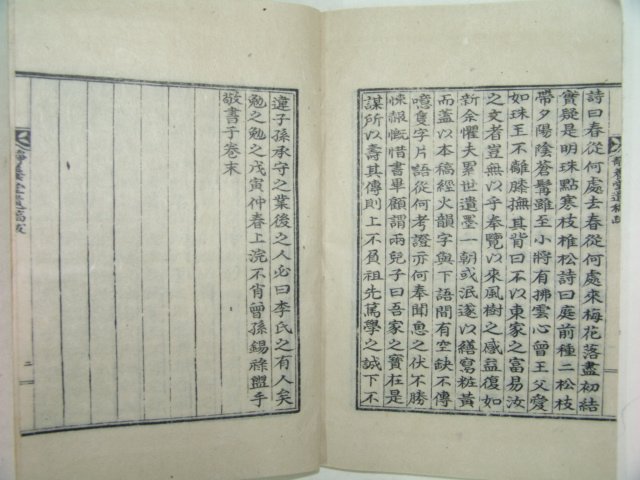 詩曰春從何處去春從何處來梅花落盡初結
實疑是明珠點寒枝椎松詩曰庭前種二松枝
帶夕陽陰蒼髯雖至小將有拂雲心曾王父愛
如珠玉不離膝撫其背曰不以東家之富易汝
之文者豈無以乎奉覽以來風樹之感益復如
新余懼夫累世遺墨一朝或泯遂以繕寫粧黃
而蓋以本稿經火韻字與下語間有空缺不傳
噫隻字片語從何考證亦何奉聞思之伏不勝
悚報慨惜書畢顧謂兩兒子曰吾家之寶在是
謀所以壽其傳則上不負祖先篤學之誠下不
違子孫承守之業後之人必曰李氏之有人矣
勉之勉之戊寅仲春上浣不肖曾孫錫祿盥手
敬書于卷末
二